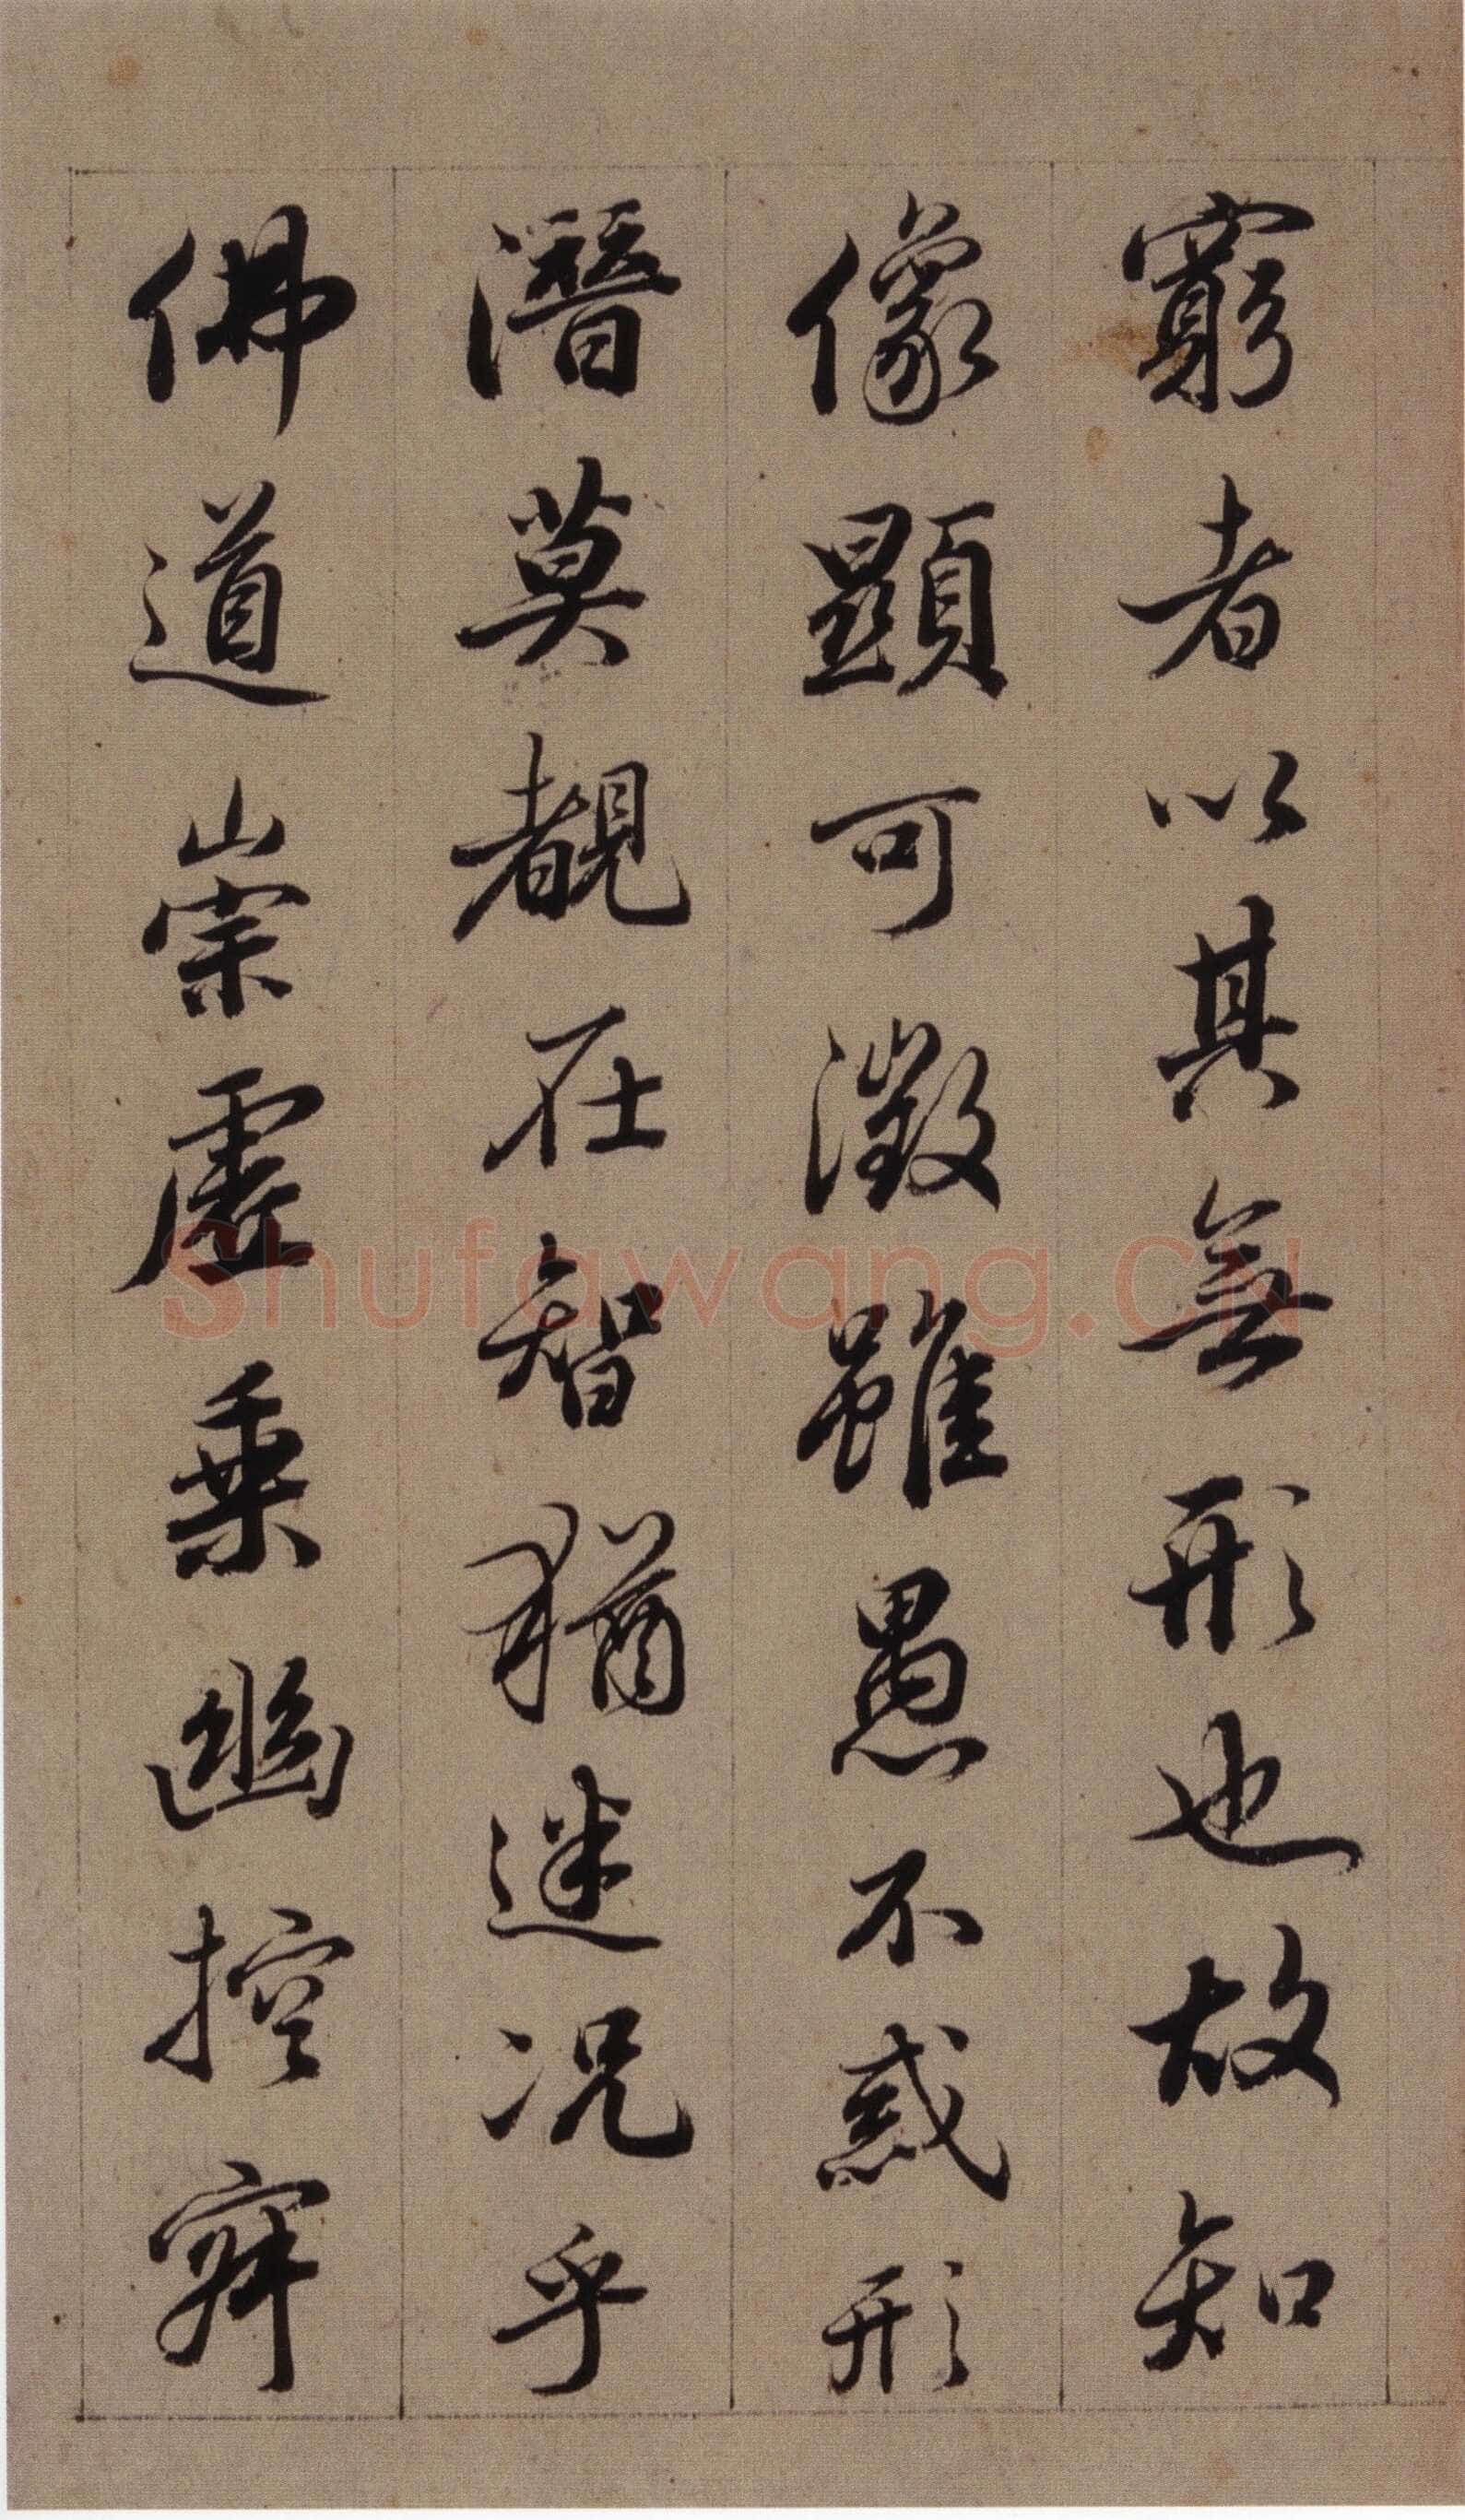 窮者以其無形也故知
像顯可徵雖愚不惑形
潛莫覩在智猶迷況乎
佛道崇虛乘幽控寂
Shufawang.cn